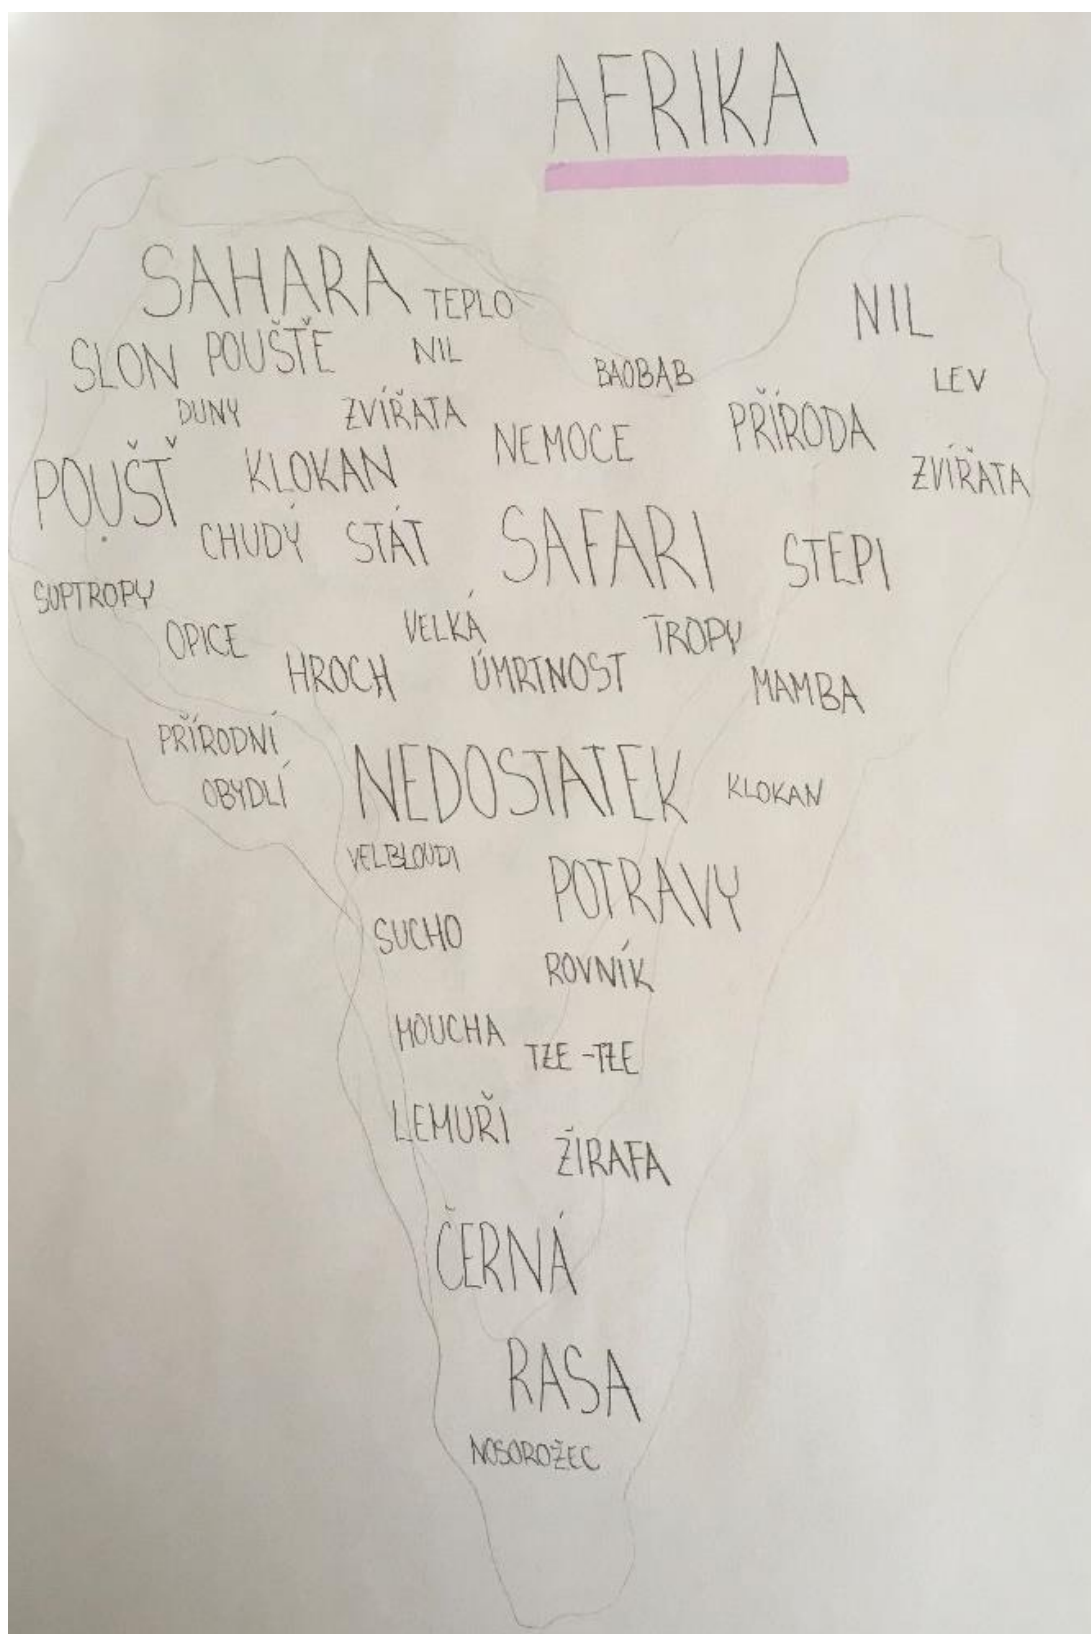 AFRIKA
SAHARA TEPLO
NIL
SLON POUŠTĚ NIL
BAOBAB LEV
DUNY ZVÍŘATA
NEMOCE PŘÍRODA
POUŠŤ KLOKAN ZVÍŘATA
CHUDÝ STÁT SAFARI STEPI
SUPTROPY
OPICE VELKÁ TROPY
HROCH ÚMRTNOST MAMBA
PŘÍRODNÍ
OBYDLÍ NEDOSTATEK KLOKAN
VELBLOUDI POTRAVY
SUCHO
ROVNÍK
MOUCHA TZE-TZE
LEMUŘI
ŽIRAFA
ČERNÁ
RASA
NOSOROŽEC